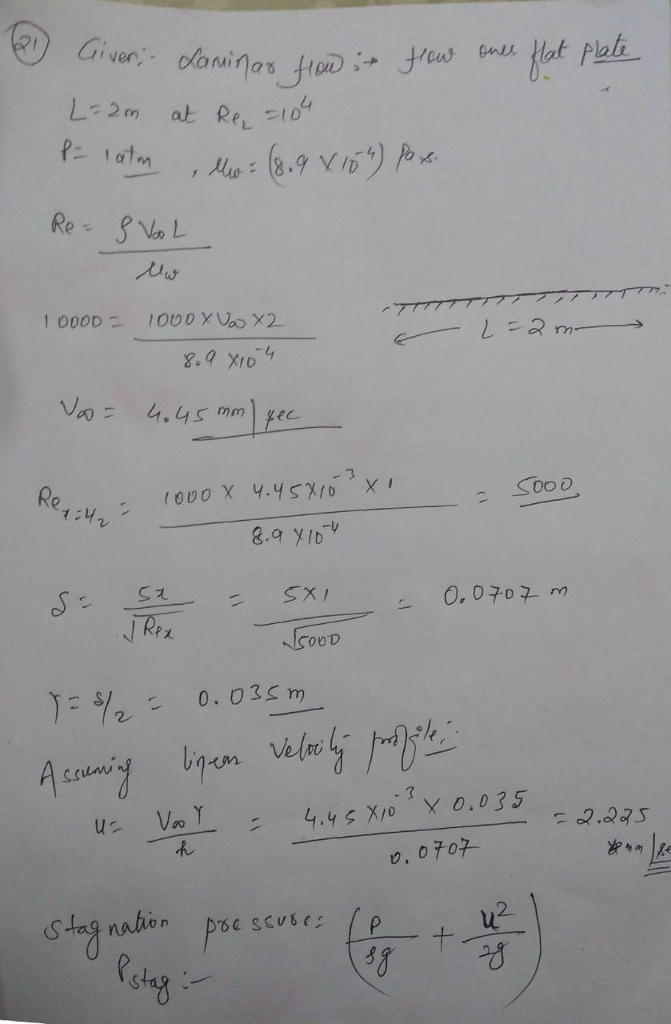 21) Given:- Laminar flow :→ flow over flat plate
L = 2m at Re_L = 10^4
P = 1 atm , μw = (8.9 X 10^-4) Pa.s.
Re = ρ V∞ L / μw
10000 = 1000 X V∞ X 2 / 8.9 X 10^-4
L = 2 m
V∞ = 4.45 mm/sec
Re_x=L/2 = 1000 X 4.45 X 10^-3 X 1 / 8.9 X 10^-4 = 5000
δ = 5x / √Rex = 5X1 / √5000 = 0.0707 m
Y = δ/2 = 0.035 m
Assuming linear velocity profile:-
u = V∞ Y / h = 4.45 X 10^-3 X 0.035 / 0.0707 = 2.225 mm/se
Stagnation pressure: (P / ρg + u^2 / 2g)
Pstag :-